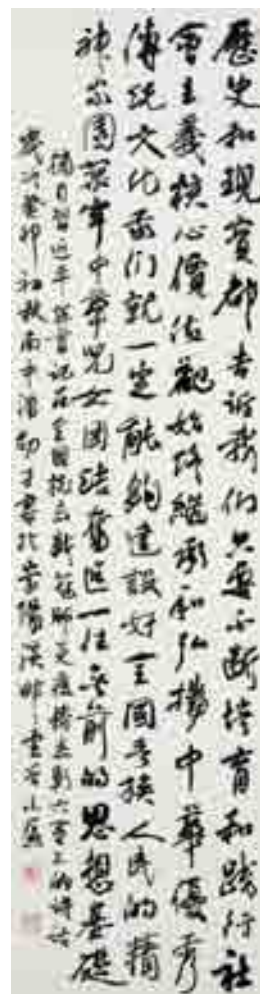 歷史和現實都告訴我们只要不斷培育和踐行社
會主義核心價值觀始终繼承和弘揚中華優秀
傳统文化我们就一定能夠建設好全國各族人民的精
神家園築牢中華兒女團結奮進一往無前的思想基礎
摘自習近平總書記在全國抗击新冠肺炎疫情表彰大會上的講話
歲次癸卯初秋南中